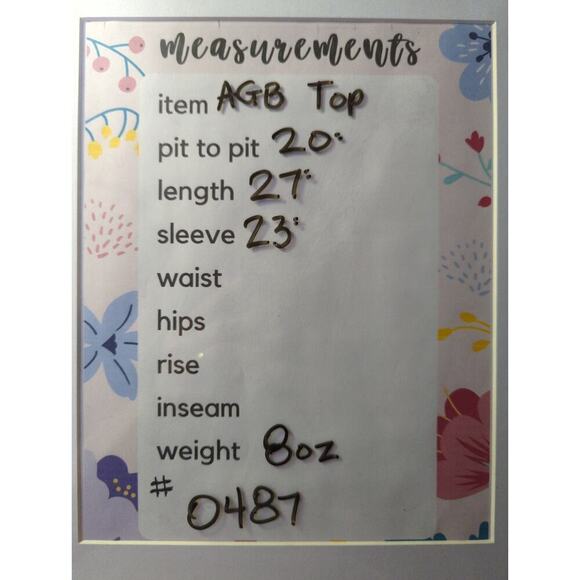 measurements
item AGB Top
pit to pit 20"
length 27"
sleeve 23"
waist
hips
rise
inseam
weight 8oz
# 0487